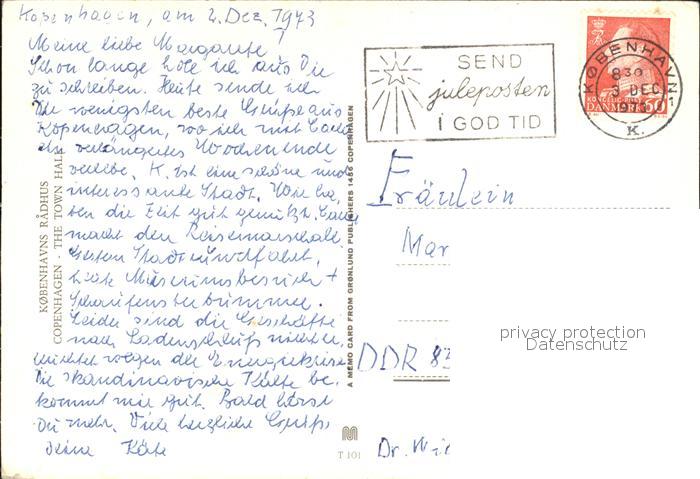 Kopenhagen, am 2. Dez. 1973
Meine liebe Margarete!
Schon lange hole ich aus Dir
zu schreiben. Heute sende ich
Dir wenigsten beste Grüße aus
Kopenhagen, wo ich mit
ein verlängertes Wochenende
verlebe. K. ist eine schöne und
interessante Stadt. Wir ha-
ben die Zeit gut genützt.
macht den Reisemarschall.
Gestern Stadtrundfahrt,
heute Museumsbesuch +
Schaufensterbummel.
Leider sind die Geschäfte
nach Ladenschluß nicht er-
leuchtet wegen der Energiekrise.
Die skandinavische Kälte be-
kommt mir gut. Bald hörst
Du mehr. Viele herzliche Grüße,
Deine Käte
KØBENHAVNS RÅDHUS
COPENHAGEN · THE TOWN HALL
A MEMO CARD FROM GRØNLUND PUBLISHERS 1456 COPENHAGEN
T 101
SEND
juleposten
I GOD TID
KØBENHAVN
8 30
3 DEC
197
K.
DANMARK 60
Fräulein
Mar
DDR 83
Dr.
privacy protection
Datenschutz